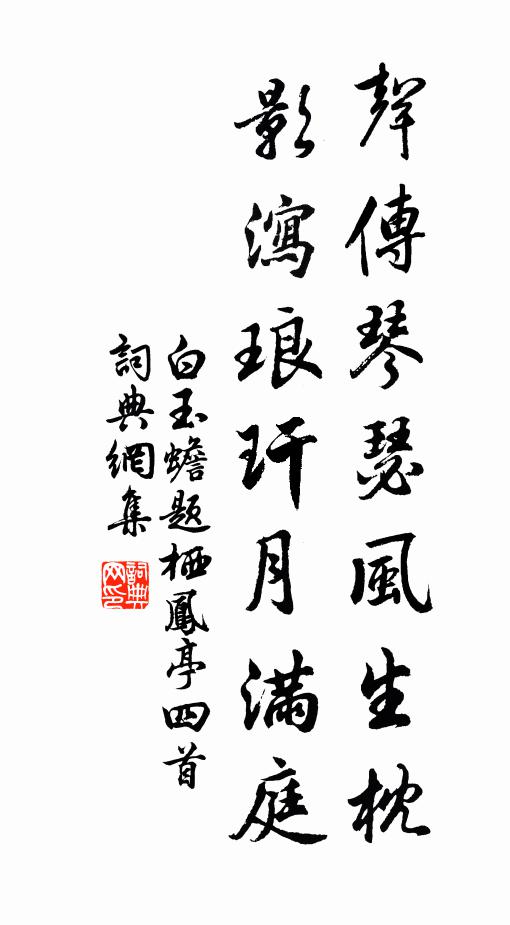 聲傳琴瑟風生枕
影瀉琅玕月滿庭
白玉蟾題栖鳳亭四首
詞典網集
詞典网印